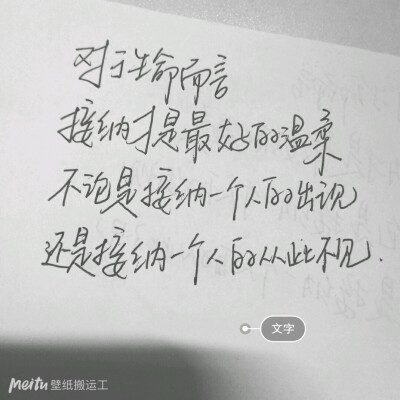 对于生命而言
接纳才是最好的温柔
不论是接纳一个人的出现
还是接纳一个人的从此不见.
文字
meitu 壁纸搬运工